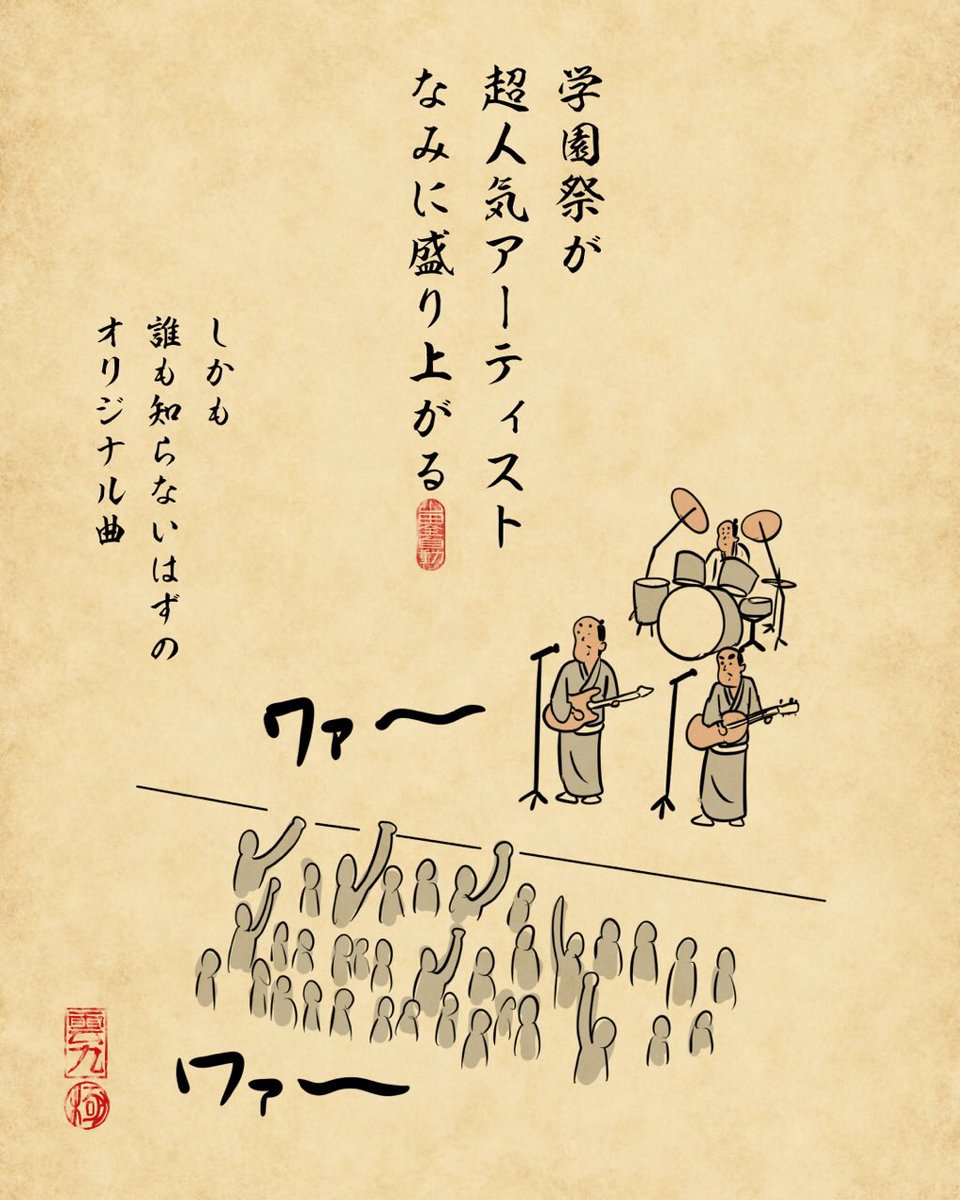 学園祭が
超人気アーティスト
なみに盛り上がる
しかも
誰も知らないはずの
オリジナル曲
ワァ〜
ワァ〜
雲九